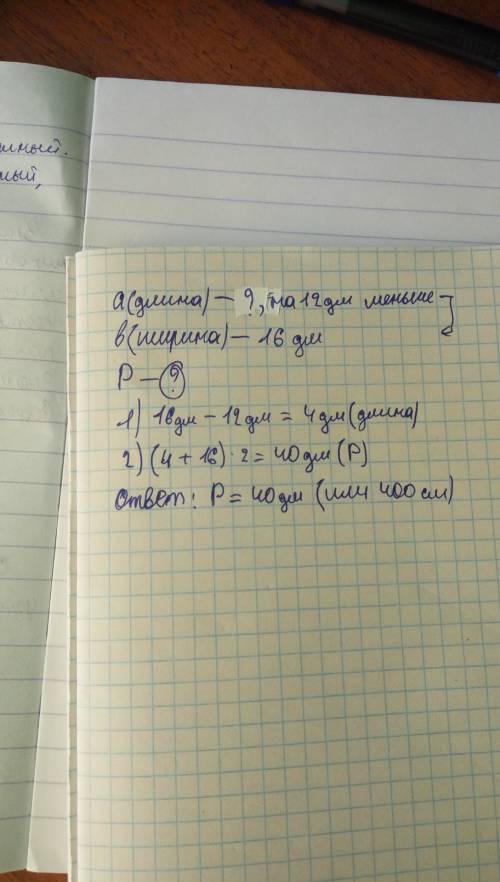 лный.
мый,
a(длина) — ?, на 12 дм меньше
в(ширина) — 16 дм
P — ?
1) 16дм – 12дм = 4дм(длина)
2) (4 + 16) · 2 = 40дм(P)
Ответ: P = 40дм (или 400см)